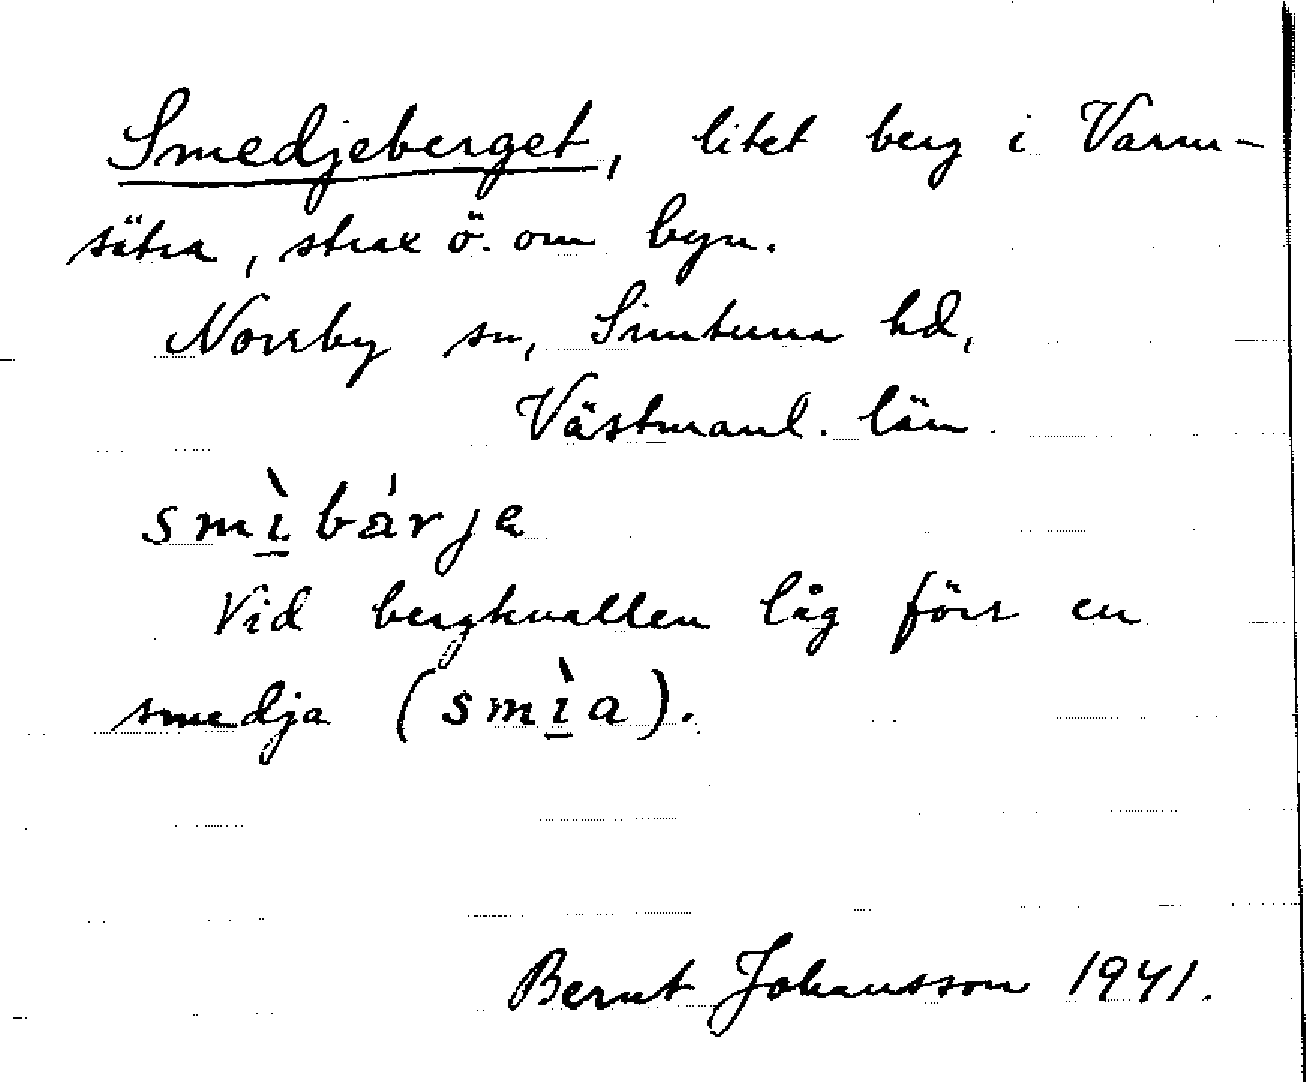 Smedjeberget, litet berg i Varm-
sätra, strax ö. om byn.
Norrby sn, Simtuna hd,
Västmanl. län.
smı̀bä́rjə
Vid bergknallen låg förr en
smedja (smı̀a).
Bernt Johansson 1941.